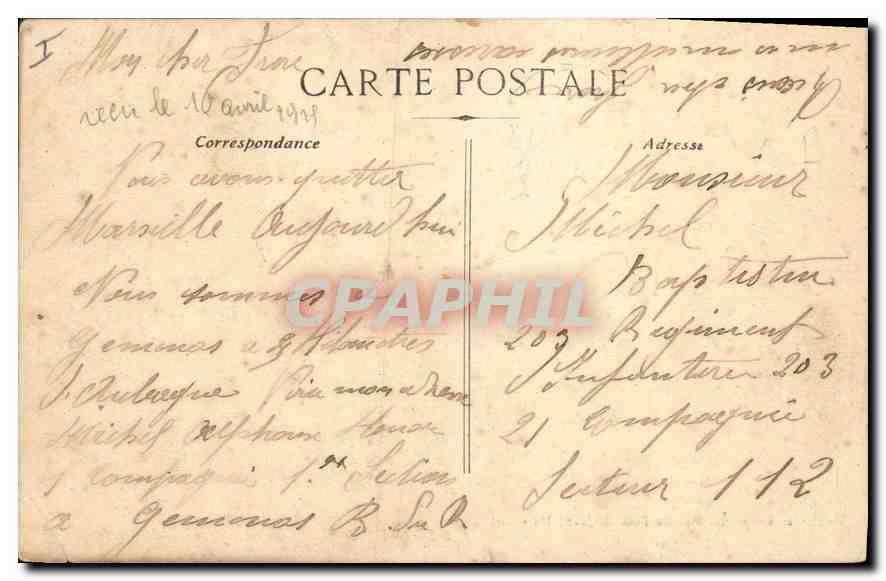 I
Mon cher Frere
recu le 10 avril 1915
CARTE POSTALE
Correspondance
Nous avons quitter
Marseille Aujourd'hui
Nous sommes a
Gemenos a 3 Kilometres
d'Aubagne Voici mon adresse
Michel Alphonse
1 Compagnie 1er Section
a Gemenos B. du R
Adresse
Monsieur
Michel
Baptistin
203 Regiment
d'Infanterie 203
21 Compagnie
Secteur 112
CPAPHIL